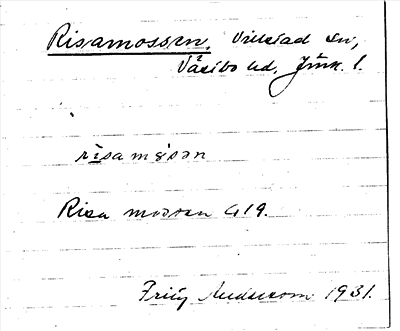 Risamossen, Villstad sn,
Västbo hd, Jönk. l.
risamosən
Risa mossen G19.
Fritz Andersson 1931.